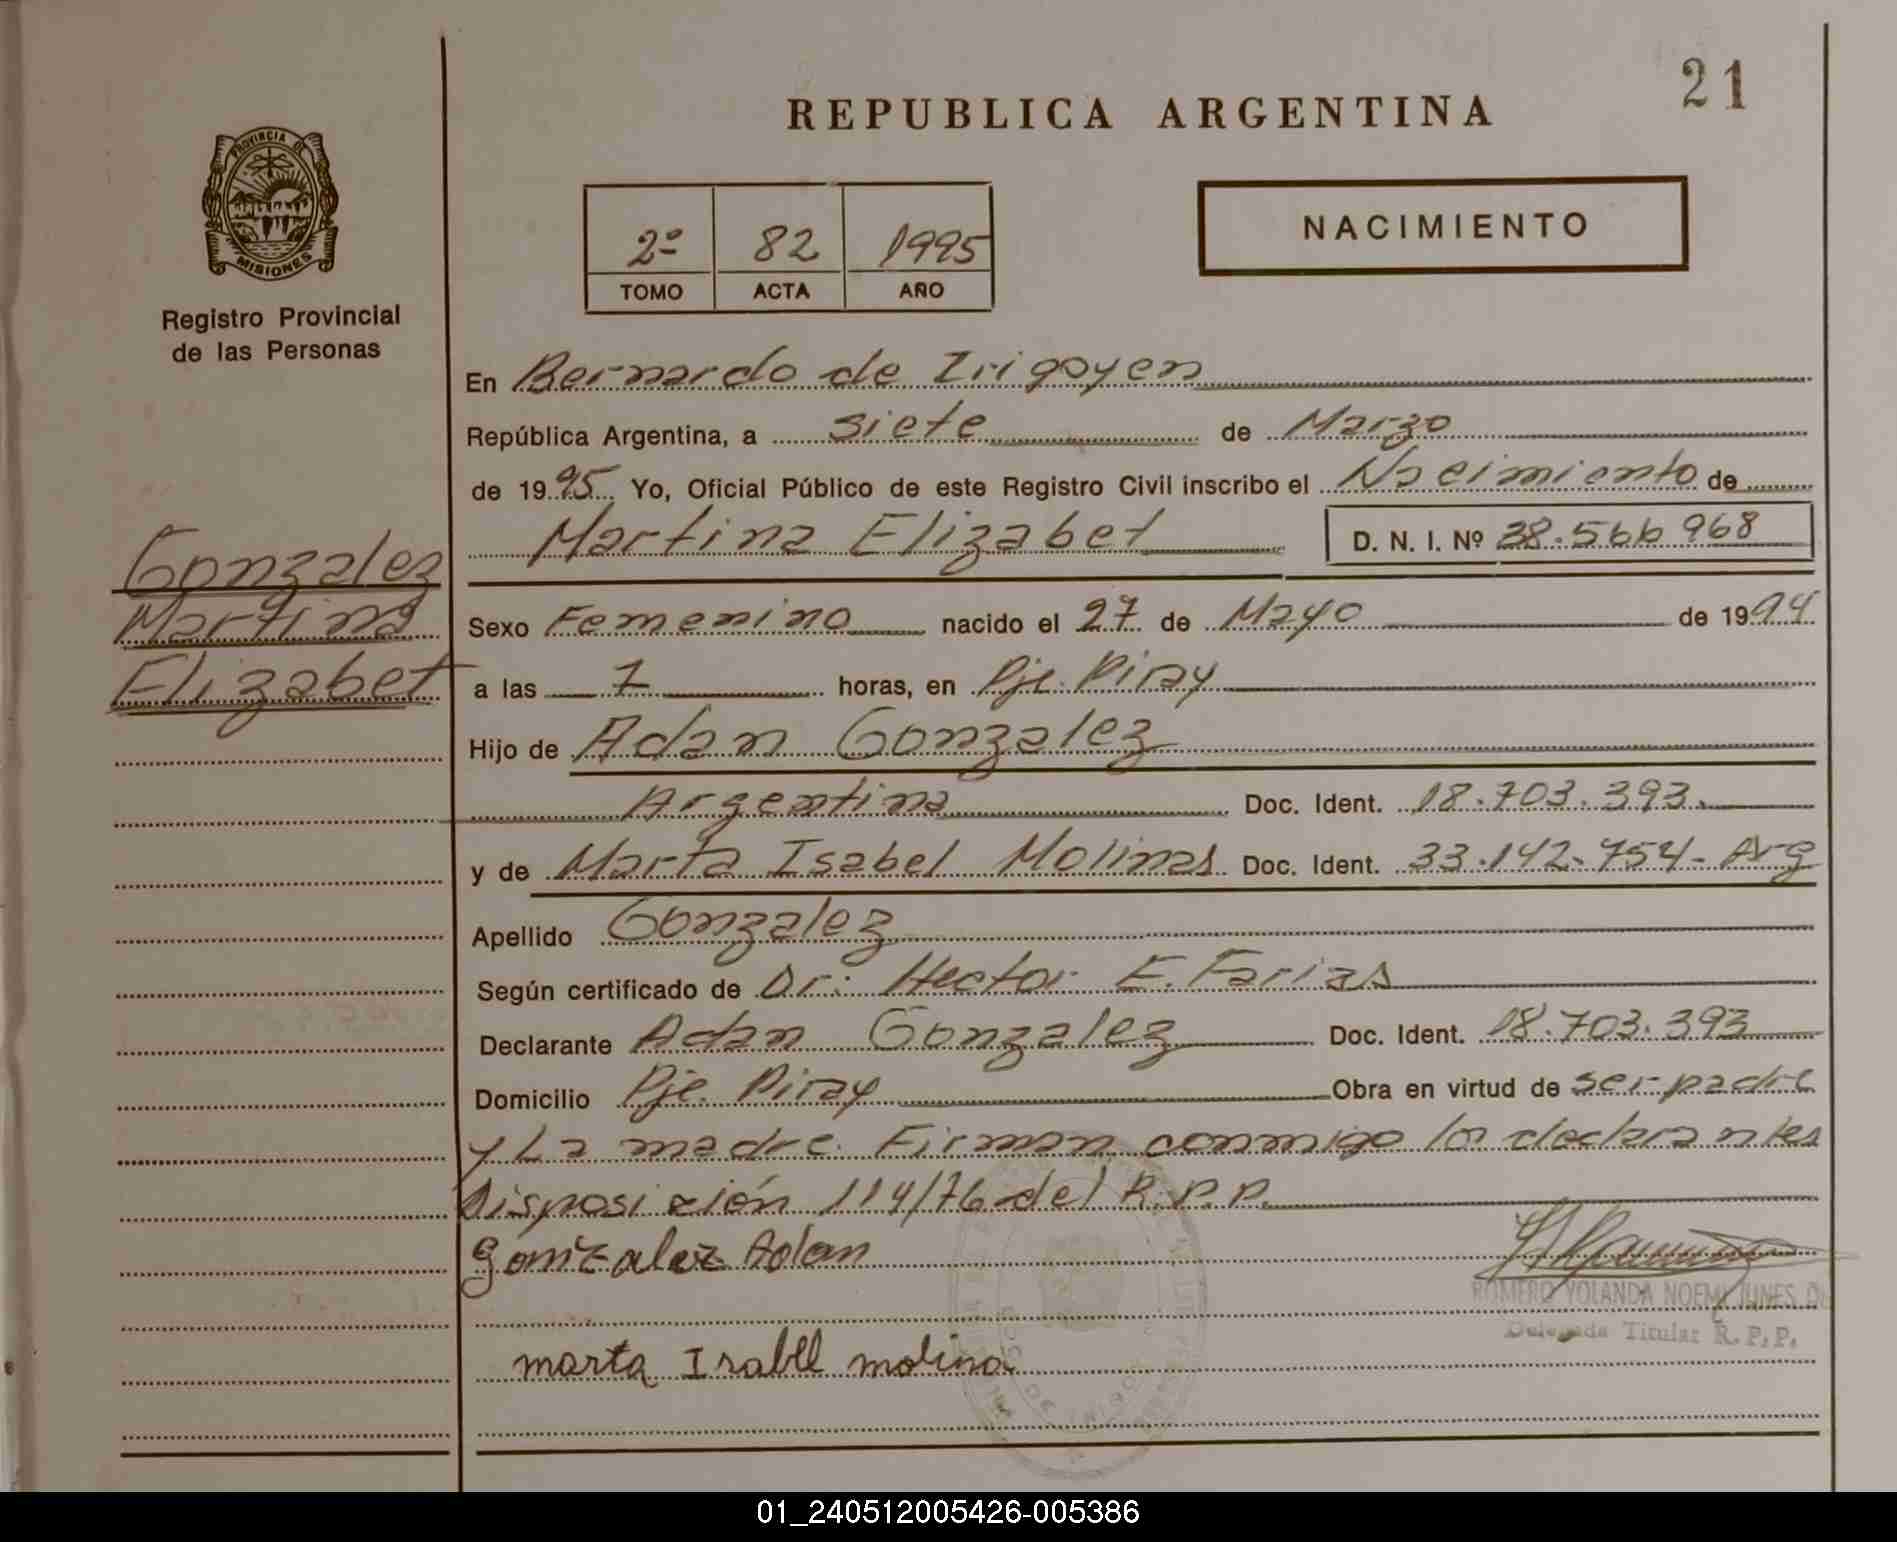 21
REPUBLICA ARGENTINA
PROVINCIA DE
MISIONES
Registro Provincial
de las Personas
2º 82 1995
TOMO ACTA AÑO
NACIMIENTO
En Bernardo de Irigoyen
República Argentina, a siete de Marzo
de 1995 Yo, Oficial Público de este Registro Civil inscribo el Nacimiento de
Martina Elizabet D. N. I. Nº 38.566968
Gonzalez
Martina
Elizabet
Sexo Femenino nacido el 27 de Mayo de 1994
a las 7 horas, en Pje. Piray
Hijo de Adan Gonzalez
Argentina Doc. Ident. 18.703.393.
y de Marta Isabel Molinas Doc. Ident. 33.142.754- Arg
Apellido Gonzalez
Según certificado de Dr: Hector E. Farias
Declarante Adan Gonzalez Doc. Ident. 18.703.393
Domicilio Pje. Piray Obra en virtud de ser padre
y La madre. Firman conmigo los declarantes
Disposición 114/76 del R.P.P.
Gonzalez Adan
ROMERO YOLANDA NOEMI JUNES DE
Delegada Titular R.P.P.
marta Isabel molina
01_240512005426-005386